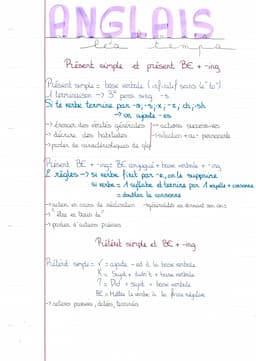 ANGLAIS
les temps
Présent simple et présent BE + -ing
Présent simple = base verbale (infinitif sans "to")
1 terminaison → 3e pers sing -s
Si le verbe termine par -o; -s; -x; -z; ch; -sh
→ on ajoute -es
→ énoncer des vérités générales → actions successives
→ décrire des habitudes → situation permanente
→ parler de caractéristiques de qlq
Présent BE + -ing = BE conjugué + base verbale + -ing
2 règles → si verbe finit par -e, on le supprime
si verbe = 1 syllabe et termine par 1 voyelle + consonne
= doubler la consonne
→ action en cours de réalisation
→ "être en train de"
→ parler d'actions prévues
Prétérit simple et BE + -ing
Prétérit simple = V = ajoute -ed à la base verbale
X = Sujet + didn't + base verbale
? = Did + sujet + base verbale
BE = Mettre le verbe à la forme négative
→ actions passées, datées, terminées